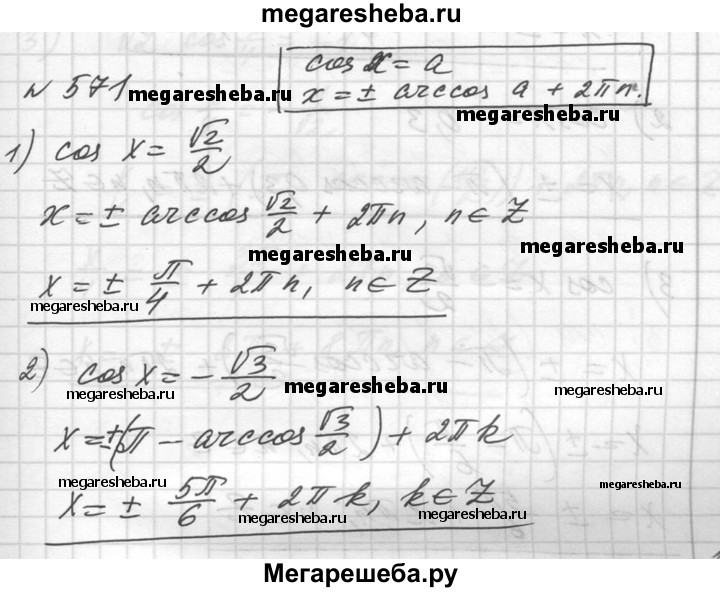 megaresheba.ru
N 571
cos x = a
x = ± arccos a + 2πn.
megaresheba.ru
megaresheba.ru
1) cos x = √2/2
x = ± arccos √2/2 + 2πn, n ∈ Z
megaresheba.ru
megaresheba.ru
x = ± π/4 + 2πn, n ∈ Z
megaresheba.ru
megaresheba.ru
2) cos x = - √3/2
megaresheba.ru
megaresheba.ru
megaresheba.ru
x = ±(π - arccos √3/2) + 2πk
megaresheba.ru
megaresheba.ru
megaresheba.ru
x = ± 5π/6 + 2πk, k ∈ Z
megaresheba.ru
megaresheba.ru
Мегарешеба.ру